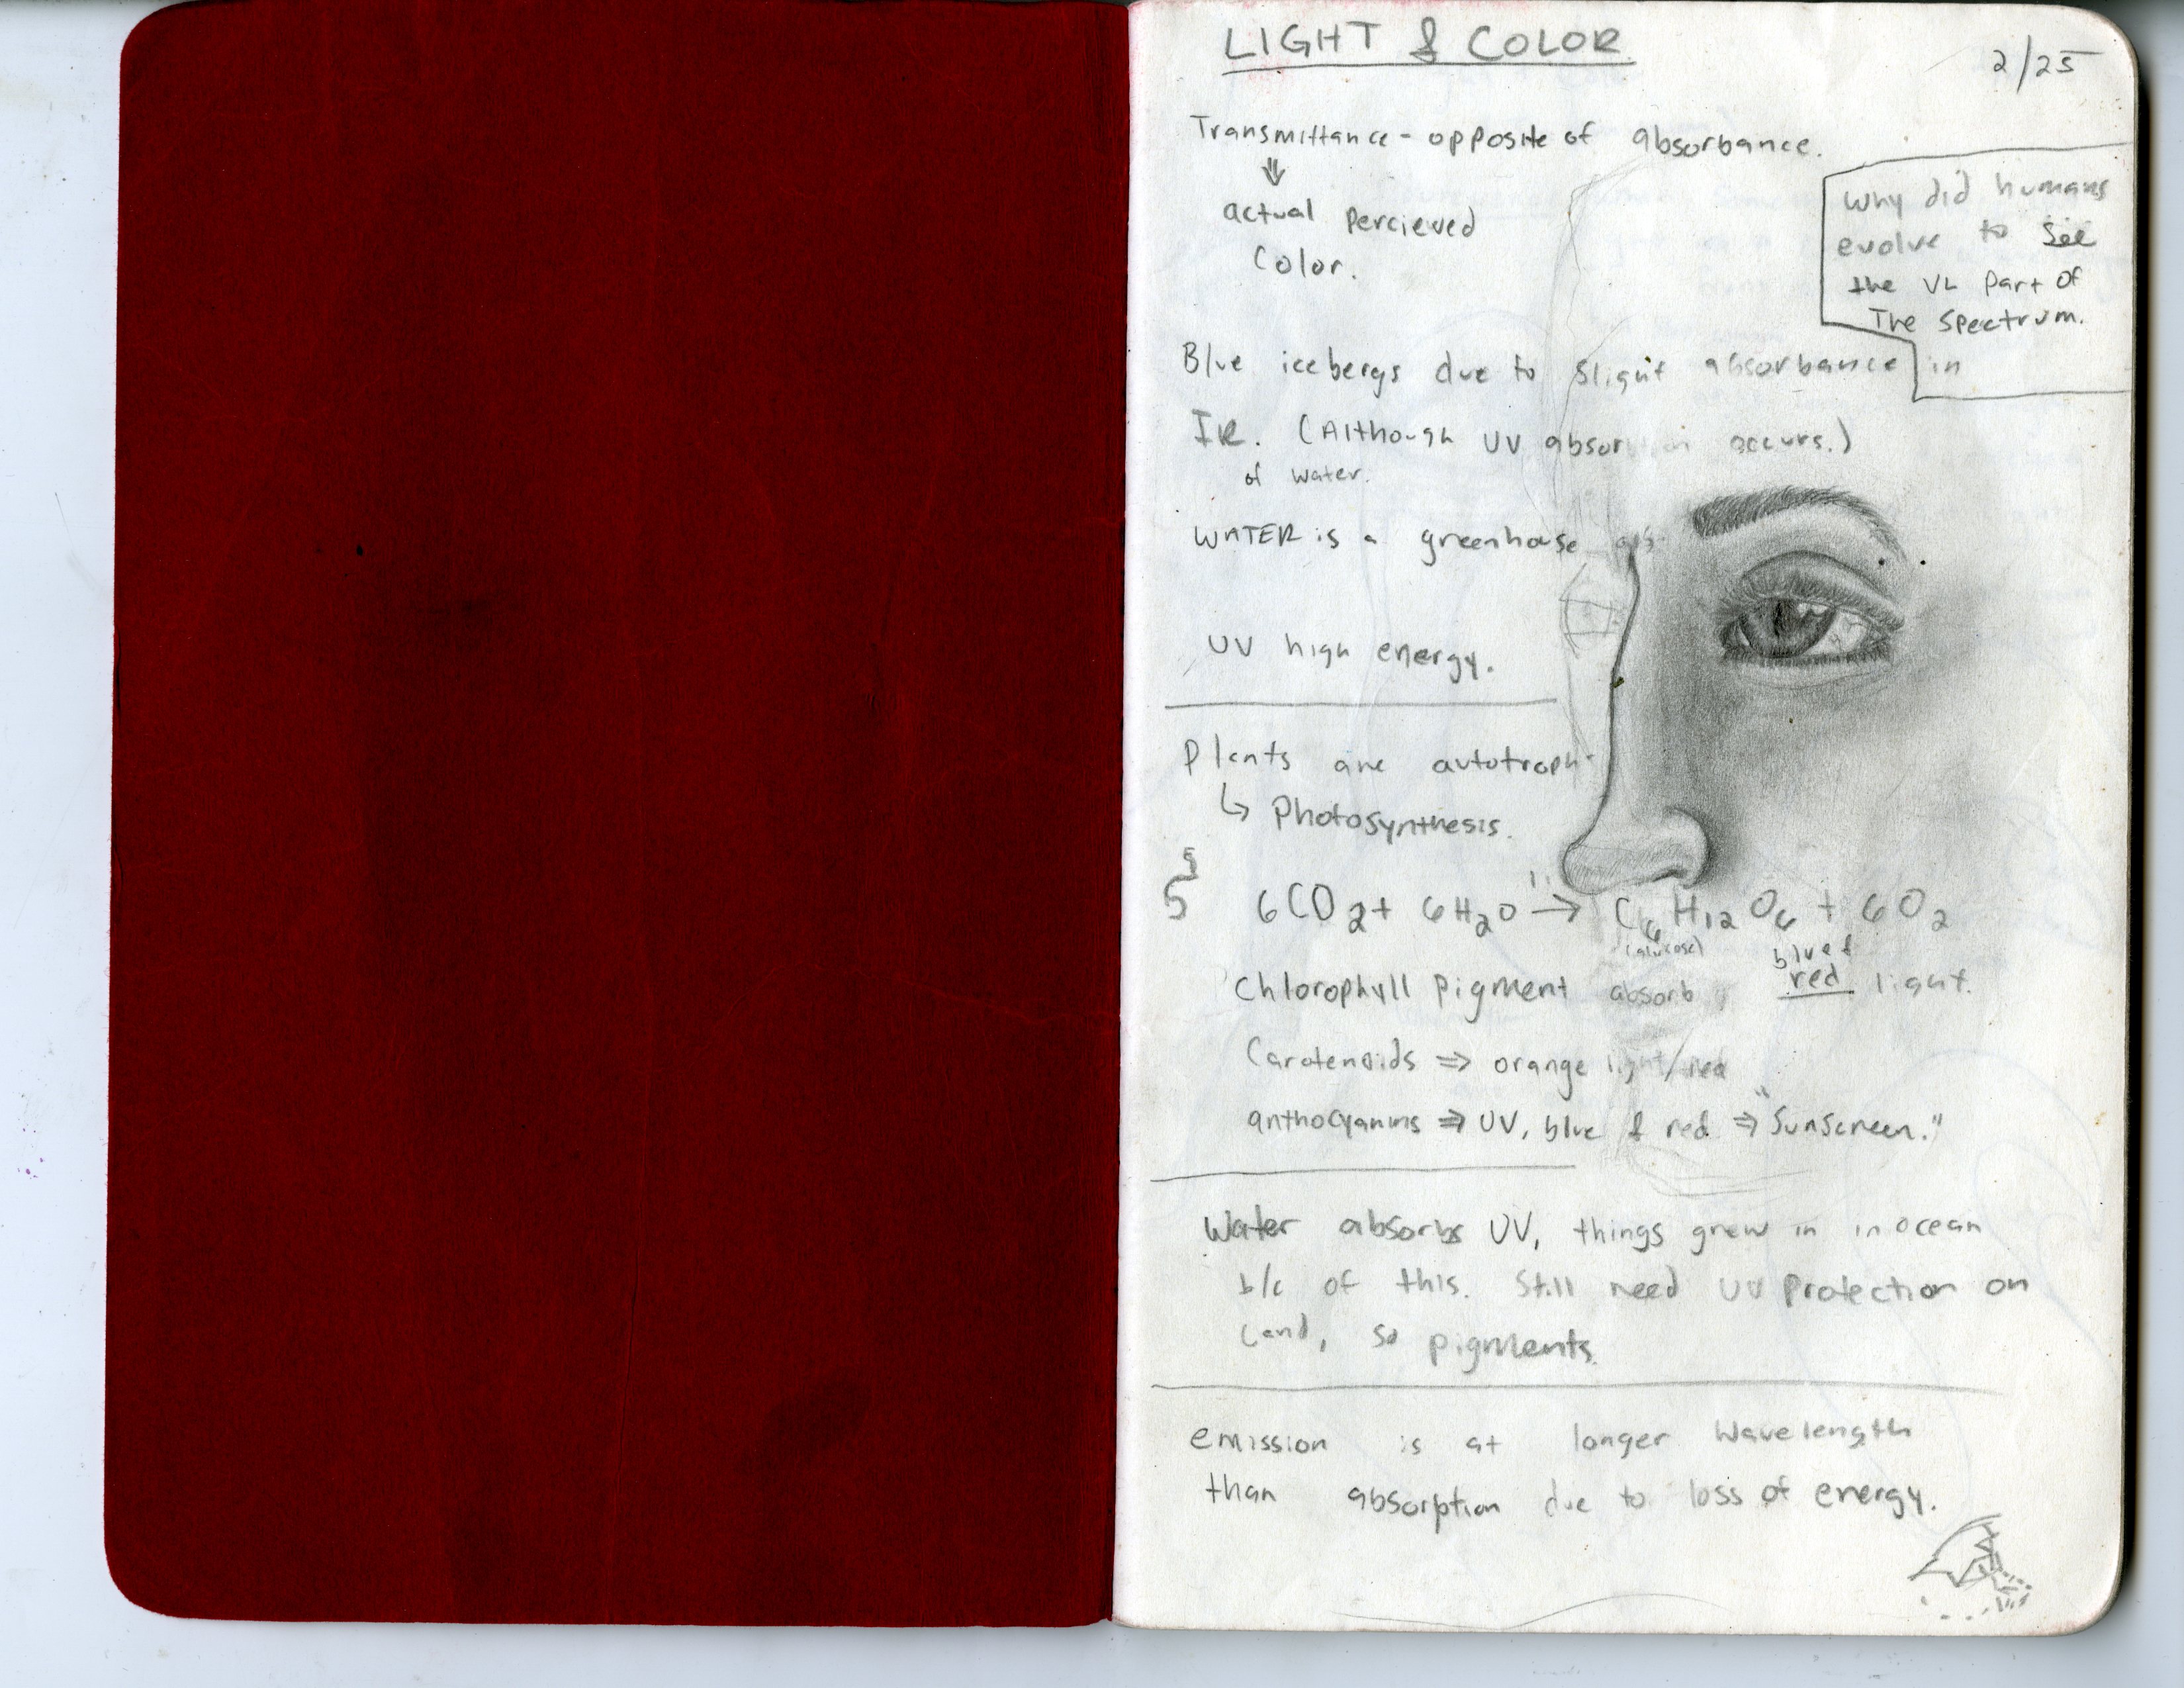 LIGHT & COLOR
2/25
Transmittance - opposite of absorbance.
actual percieved
color.
Why did humans
evolve to see
the VL part of
The spectrum.
Blue icebergs due to slight absorbance in
IR. (Although UV absorption occurs.)
of water.
WATER is a greenhouse gas.
UV high energy.
Plants are autotroph
↳ Photosynthesis.
6CO2 + 6H2O → C6H12O6 + 6O2
(glucose)
blue &
Chlorophyll pigment absorb red light.
Carotenoids ⇒ orange light/red
anthocyanins ⇒ UV, blue & red ⇒ "Sunscreen."
Water absorbs UV, things grew in in ocean
b/c of this. Still need UV protection on
land, so pigments.
emission is at longer wavelength
than absorption due to loss of energy.